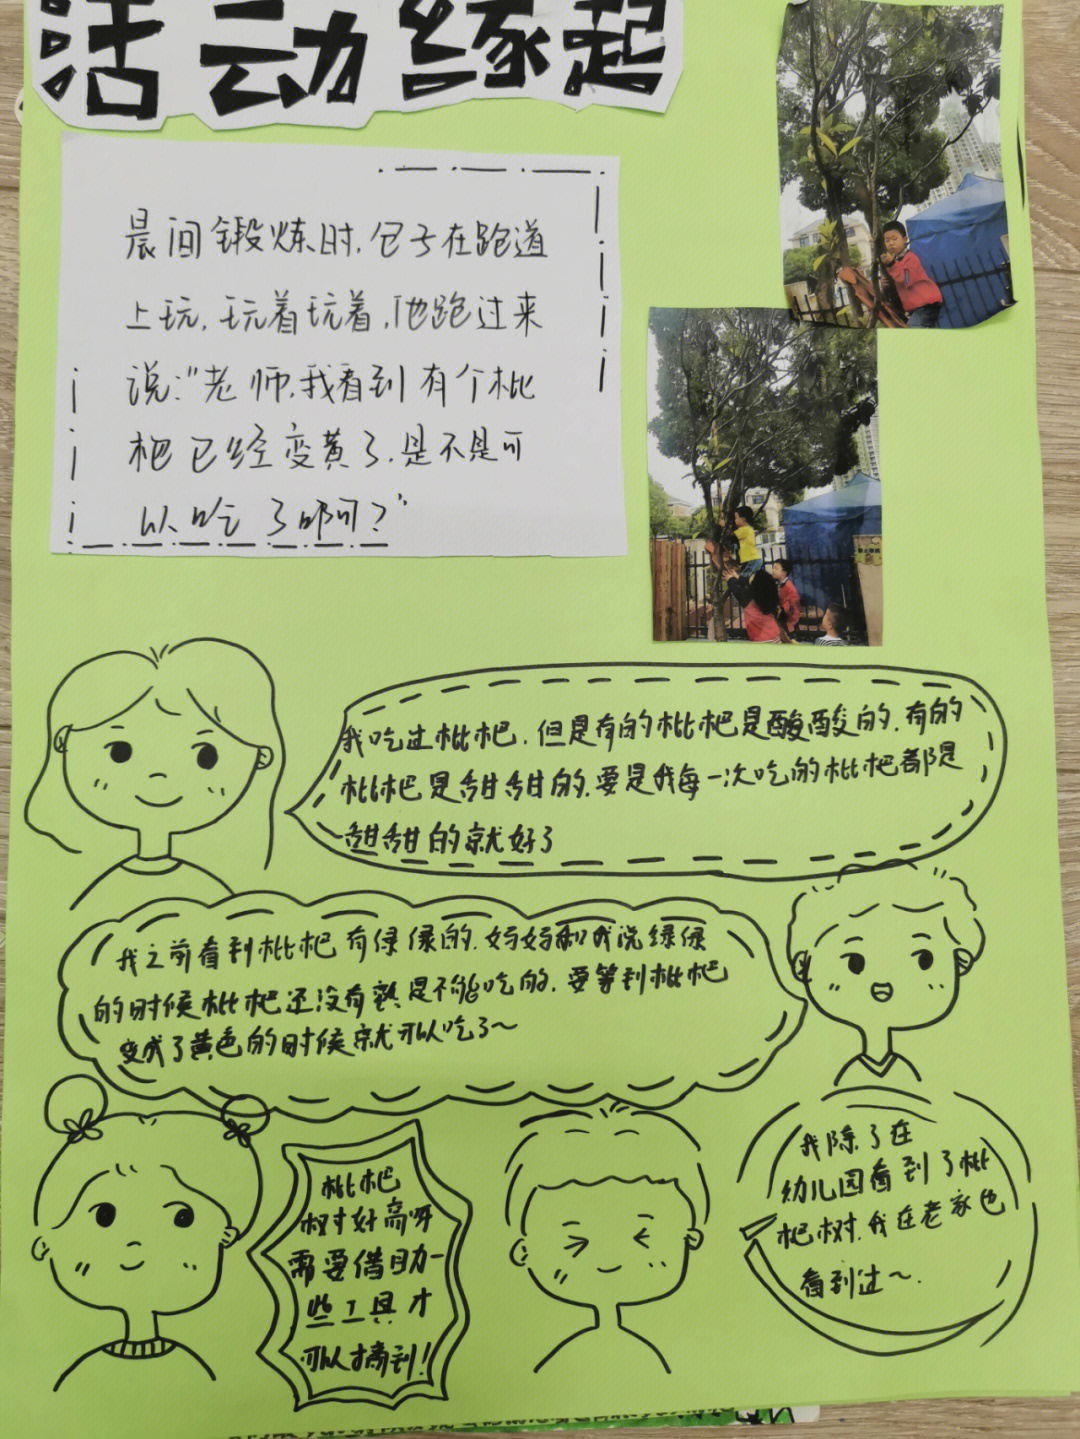 活动缘起
晨间锻炼时,包子在跑道
上玩,玩着玩着,他跑过来
说:“老师,我看到有个枇
杷已经变黄了,是不是可
以吃了啊?”
我吃过枇杷,但是有的枇杷是酸酸的,有的
枇杷是甜甜的,要是我每一次吃的枇杷都是
甜甜的就好了
我之前看到枇杷有绿绿的,妈妈和我说绿绿
的时候枇杷还没有熟是不能吃的,要等到枇杷
变成了黄色的时候就可以吃了~
枇杷
树好高呀
需要借助一
些工具才
可以摘到!
我除了在
幼儿园看到了枇
杷树,我在老家也
看到过~.